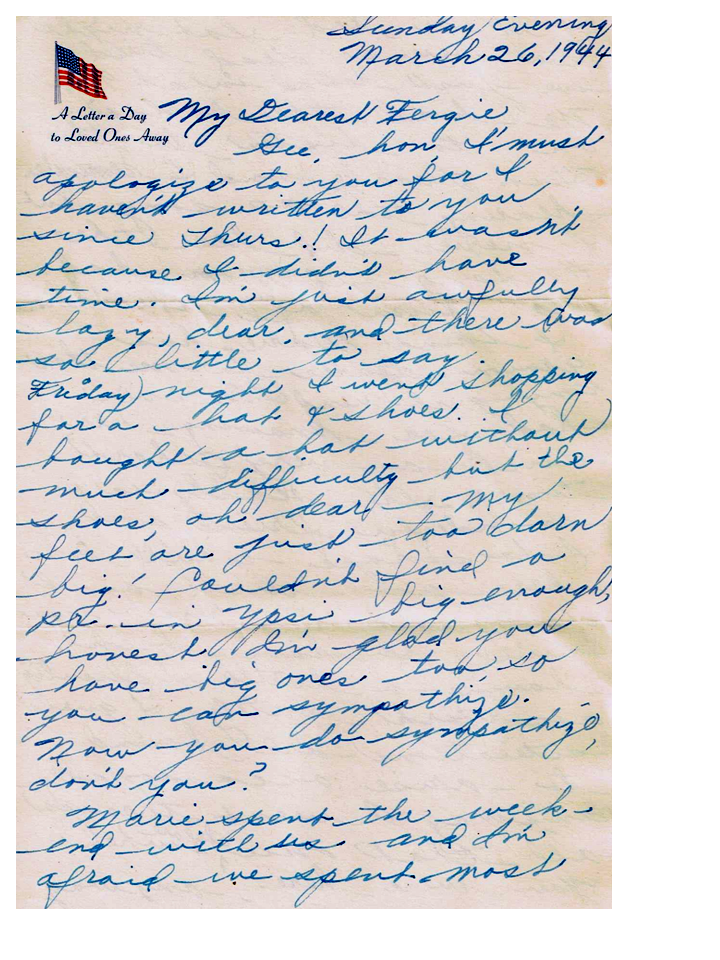 Sunday Evening
March 26, 1944
A Letter a Day
to Loved Ones Away
My Dearest Fergie
Gee, hon, I must
apologize to you for I
haven't written to you
since Thurs.! It wasn't
because I didn't have
time. I'm just awfully
lazy, dear, and there was
so little to say.
Friday night I went shopping
for a hat & shoes. I
bought a hat without
much difficulty but the
shoes, oh dear — my
feet are just too darn
big! Couldn't find a
pr. in Ypsi big enough,
honest. I'm glad you
have big ones too, so
you can sympathize.
Now you do sympathize,
don't you?
Marie spent the week-
end with us and I'm
afraid we spent most